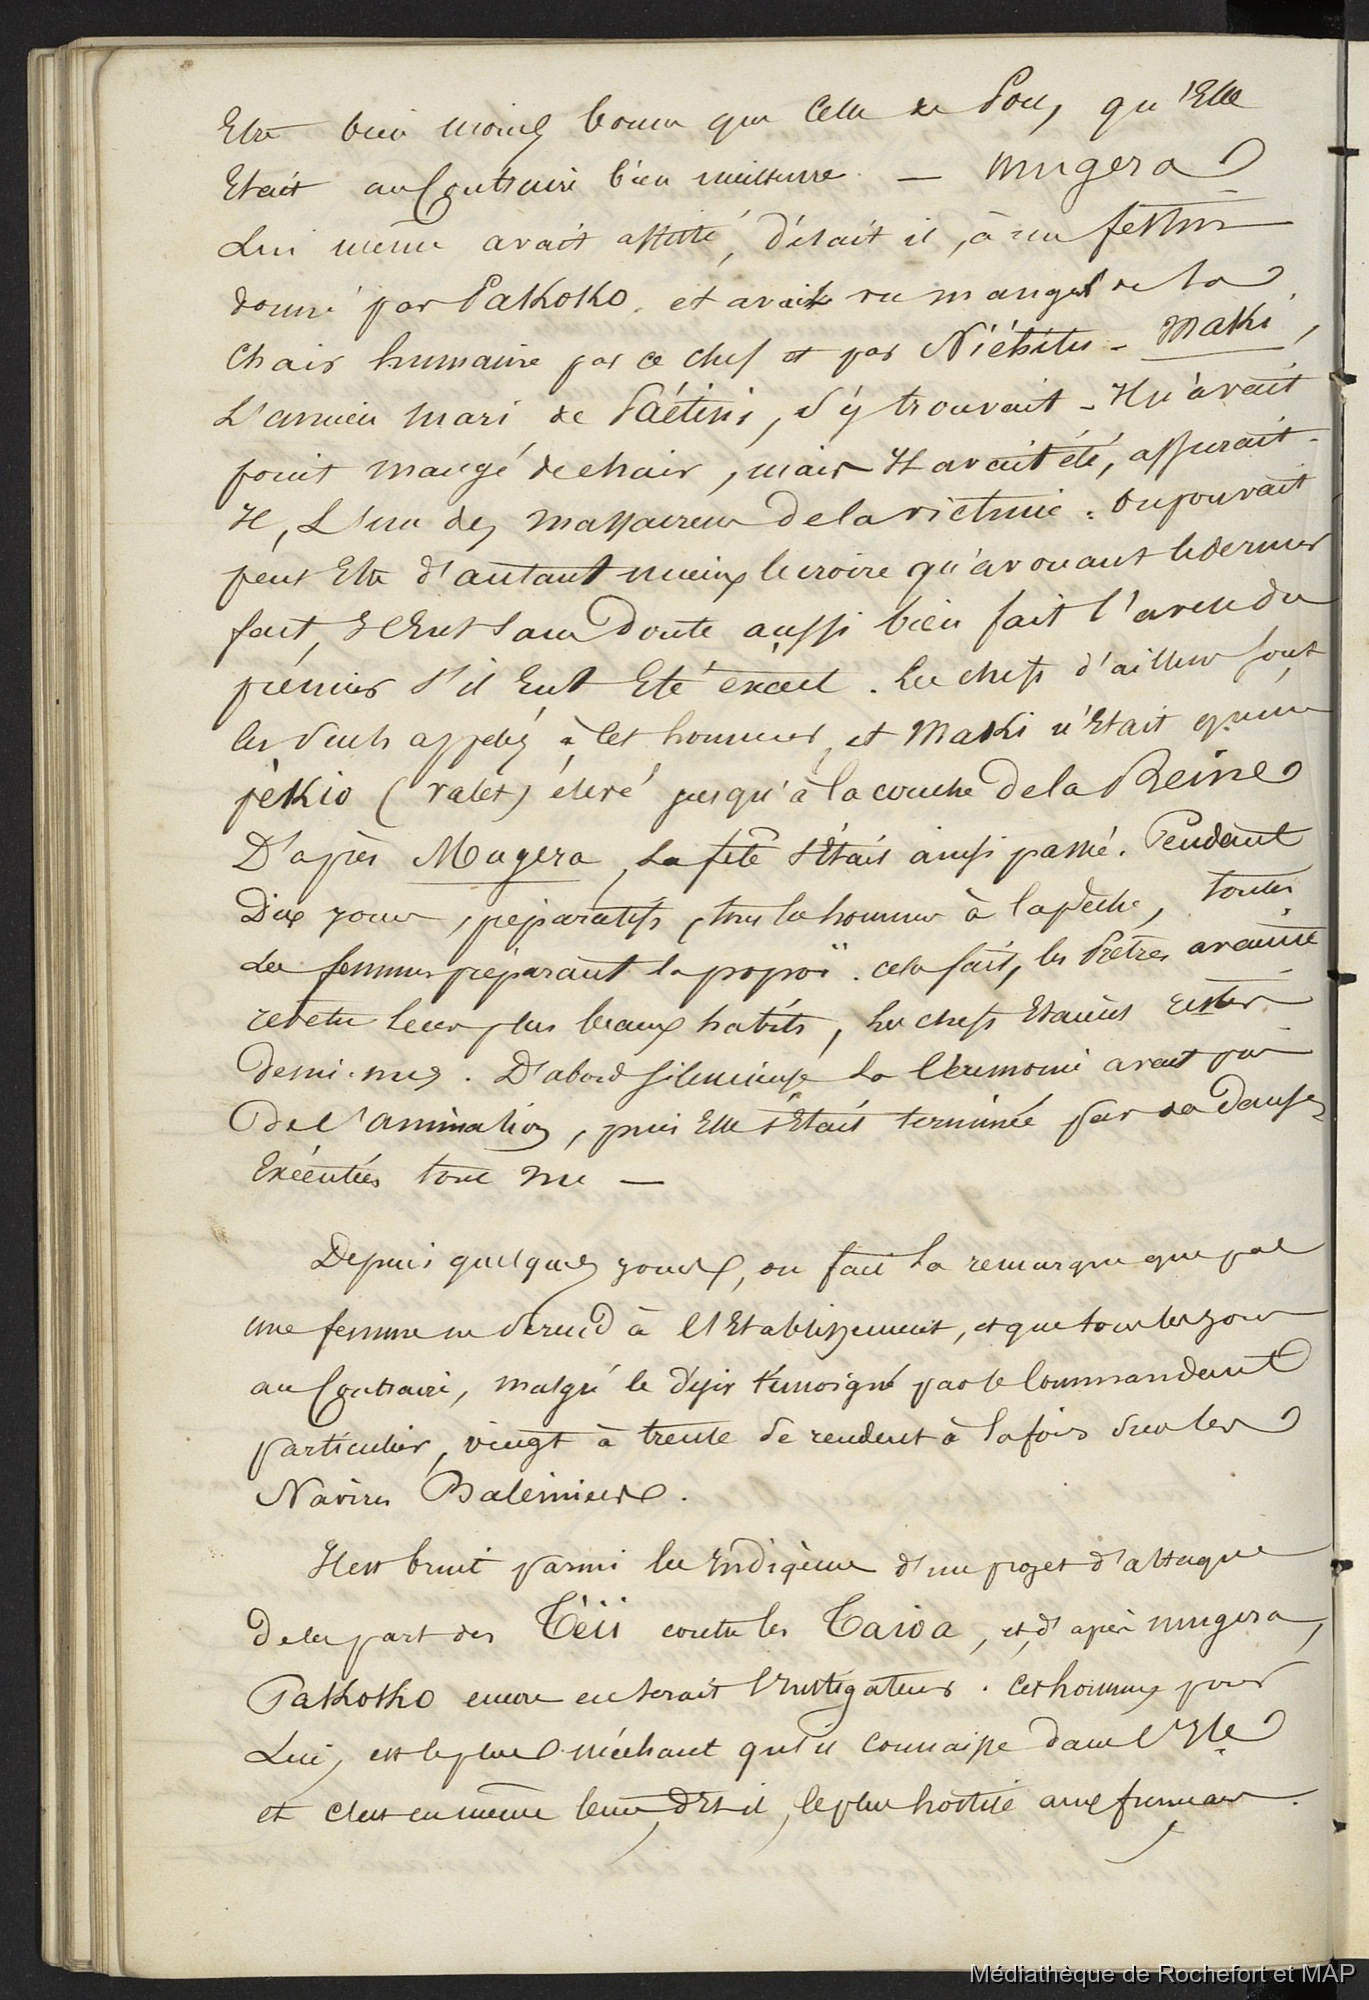 Etre bien moins bonne que celle de Porc, qu'Elle
Etait au Contraire bien meilleure. — Mugera
Lui même avait assisté, disait il, à un festin
donné par Pakoko, et avait vu manger de la
chair humaine par ce chef et par Niéhitu - Maki,
L'ancien mari de Paétini, s'y trouvait - Il n'avait
point mangé de chair, mais Il avait été, assurait-
Il, L'un des massacreurs de la victime. On pouvait
peut Etre d'autant mieux le croire qu'avouant le dernier
fait, Il Eut sans Doute aussi bien fait l'aveu du
prémier s'il Eut Eté exact. Les chefs d'ailleurs sont
les seuls appelés à cet honneur, et Maki n'Etait qu'un
pèkio (valet) élevé jusqu'à la couche de la Reine
D'après Mugera, La fête s'Etait ainsi passé. Pendant
Dix jours, préparatifs, tous les hommes à la pêche, toutes
Les femmes préparant la popoï. cela fait, les Prêtres avaient
revetu leurs plus beaux habits, Les chefs Etaient restés
demi-nus. D'abord silencieuse La Cérémonie avait pris
De l'animation, puis Elle s'Etait terminée par sa danse
Exécutées tout nu —
Depuis quelques jours, on fait La remarque que pas
une femme ne descend à l'Etablissement, et que tous les jours
au Contraire, malgré le désir témoigné par le Commandant
particulier, vingt à trente se rendent à la fois sur les
Navires Baleiniers.
Il est bruit parmi les Indigènes d'un projet d'attaque
De la part des Téïi contre les Taioa, et, d'après Mugera,
Pakoko encore en serait l'instigateur. Cet homme pour
Lui, est le plus méchant qu'il connaisse dans l'Ile
et c'est en même tems, dit il, le plus hostile aux français.
Médiathèque de Rochefort et MAP